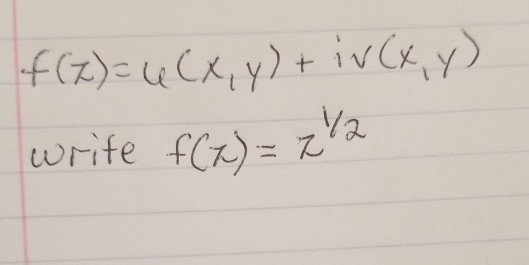 f(z)=u(x,y) + iv(x,y)
write f(z) = z^1/2